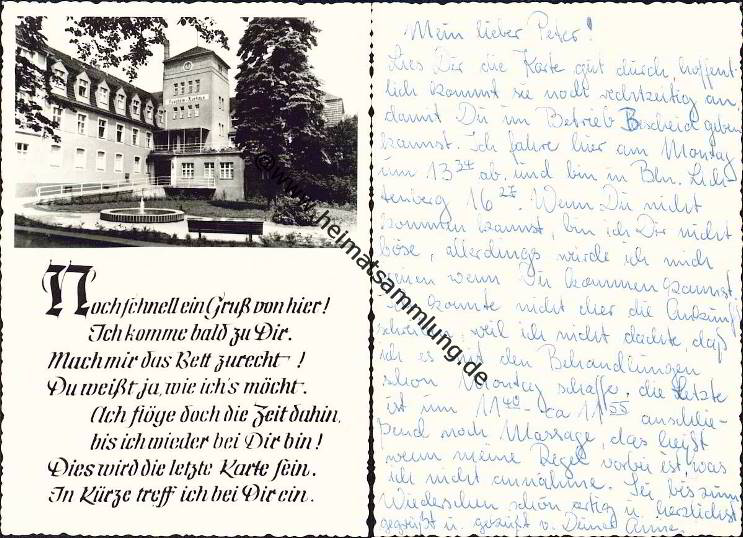 Noch schnell ein Gruß von hier!
Ich komme bald zu Dir.
Mach mir das Bett zurecht !
Du weißt ja, wie ich's möcht.
(Ich flöge doch die Zeit dahin,
bis ich wieder bei Dir bin!
Dies wird die letzte Karte sein.
In Kürze treff ich bei Dir ein.
Mein lieber Peter!
Lies Dir die Karte gut durch, hoffent-
lich kommt sie noch rechtzeitig an,
damit Du im Betrieb Bescheid geben
kannst. Ich fahre hier am Montag
um 13 34 ab und bin in Bln. Lich-
tenberg 16 27. Wenn Du nicht
kommen kannst, bin ich Dir nicht
böse, allerdings würde ich mich
freuen wenn Du kommen kannst.
Ich konnte nicht eher die Ankunft
schreiben, weil ich nicht dachte, daß
ich es mit den Behandlungen
schon Montag schaffe, die letzte
ist um 11 40 - ca 11 55 anschlie-
ßend noch Massage, das heißt
wenn meine Regel vorbei ist, was
ich nicht annehme. Sei bis zum
Wiedersehen schön artig u. herzlichst
gegrüßt u. geküßt v. Deiner Anne.
© www.heimatsammlung.de